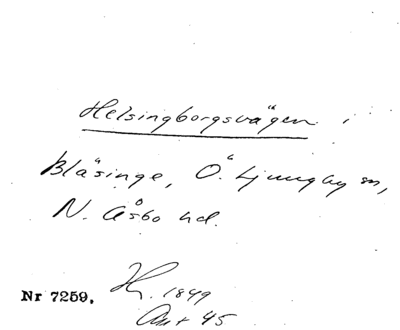 Helsingborgsvägen i
Bläsinge, Ö. Ljungby sn,
N. Åsbo hd.
Nr 7259. 1849
45